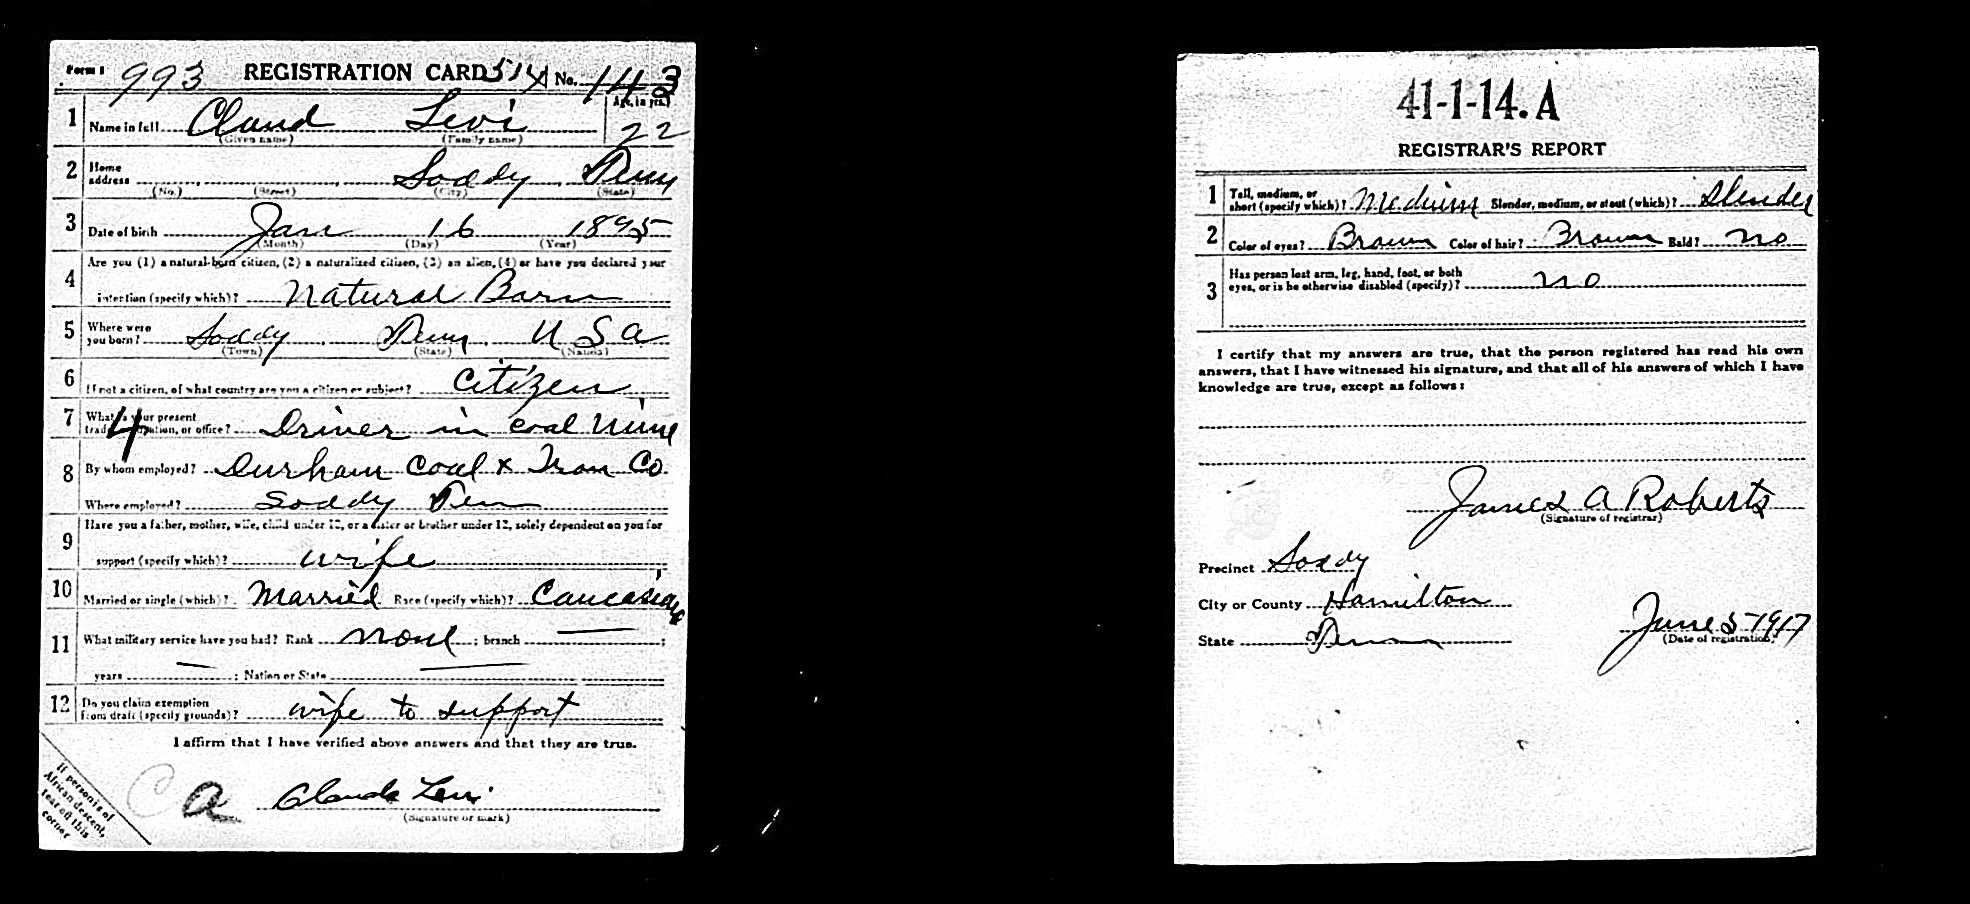 Form 1 993 REGISTRATION CARD 514 No. 143
1 Name in full Claud Levi Age, in yrs. 22
(Given name) (Family name)
2 Home address Soddy Tenn
(No.) (Street) (City) (State)
3 Date of birth Jan 16 1895
(Month) (Day) (Year)
4 Are you (1) a natural-born citizen, (2) a naturalized citizen, (3) an alien, (4) or have you declared your
intention (specify which)? Natural Born
5 Where were you born? Soddy Tenn U S A
(Town) (State) (Nation)
6 If not a citizen, of what country are you a citizen or subject? Citizen
7 What is your present
trade, occupation, or office? 4 Driver in coal Mine
8 By whom employed? Durham Coal & Iron Co
Where employed? Soddy Ten
9 Have you a father, mother, wife, child under 12, or a sister or brother under 12, solely dependent on you for
support (specify which)? wife
10 Married or single (which)? Married Race (specify which)? Caucasian
11 What military service have you had? Rank None ; branch ;
years ; Nation or State
12 Do you claim exemption
from draft (specify grounds)? wife to support
I affirm that I have verified above answers and that they are true.
C a Claude Levi
(Signature or mark)
If person is of
African descent,
tear off this
corner
41-1-14. A
REGISTRAR'S REPORT
1 Tall, medium, or
short (specify which)? Medium Slender, medium, or stout (which)? Slender
2 Color of eyes? Brown Color of hair? Brown Bald? No
3 Has person lost arm, leg, hand, foot, or both
eyes, or is he otherwise disabled (specify)? No
I certify that my answers are true, that the person registered has read his own
answers, that I have witnessed his signature, and that all of his answers of which I have
knowledge are true, except as follows:
James A Roberts
(Signature of registrar)
Precinct Soddy
City or County Hamilton
State Tenn
June 5 1917
(Date of registration)